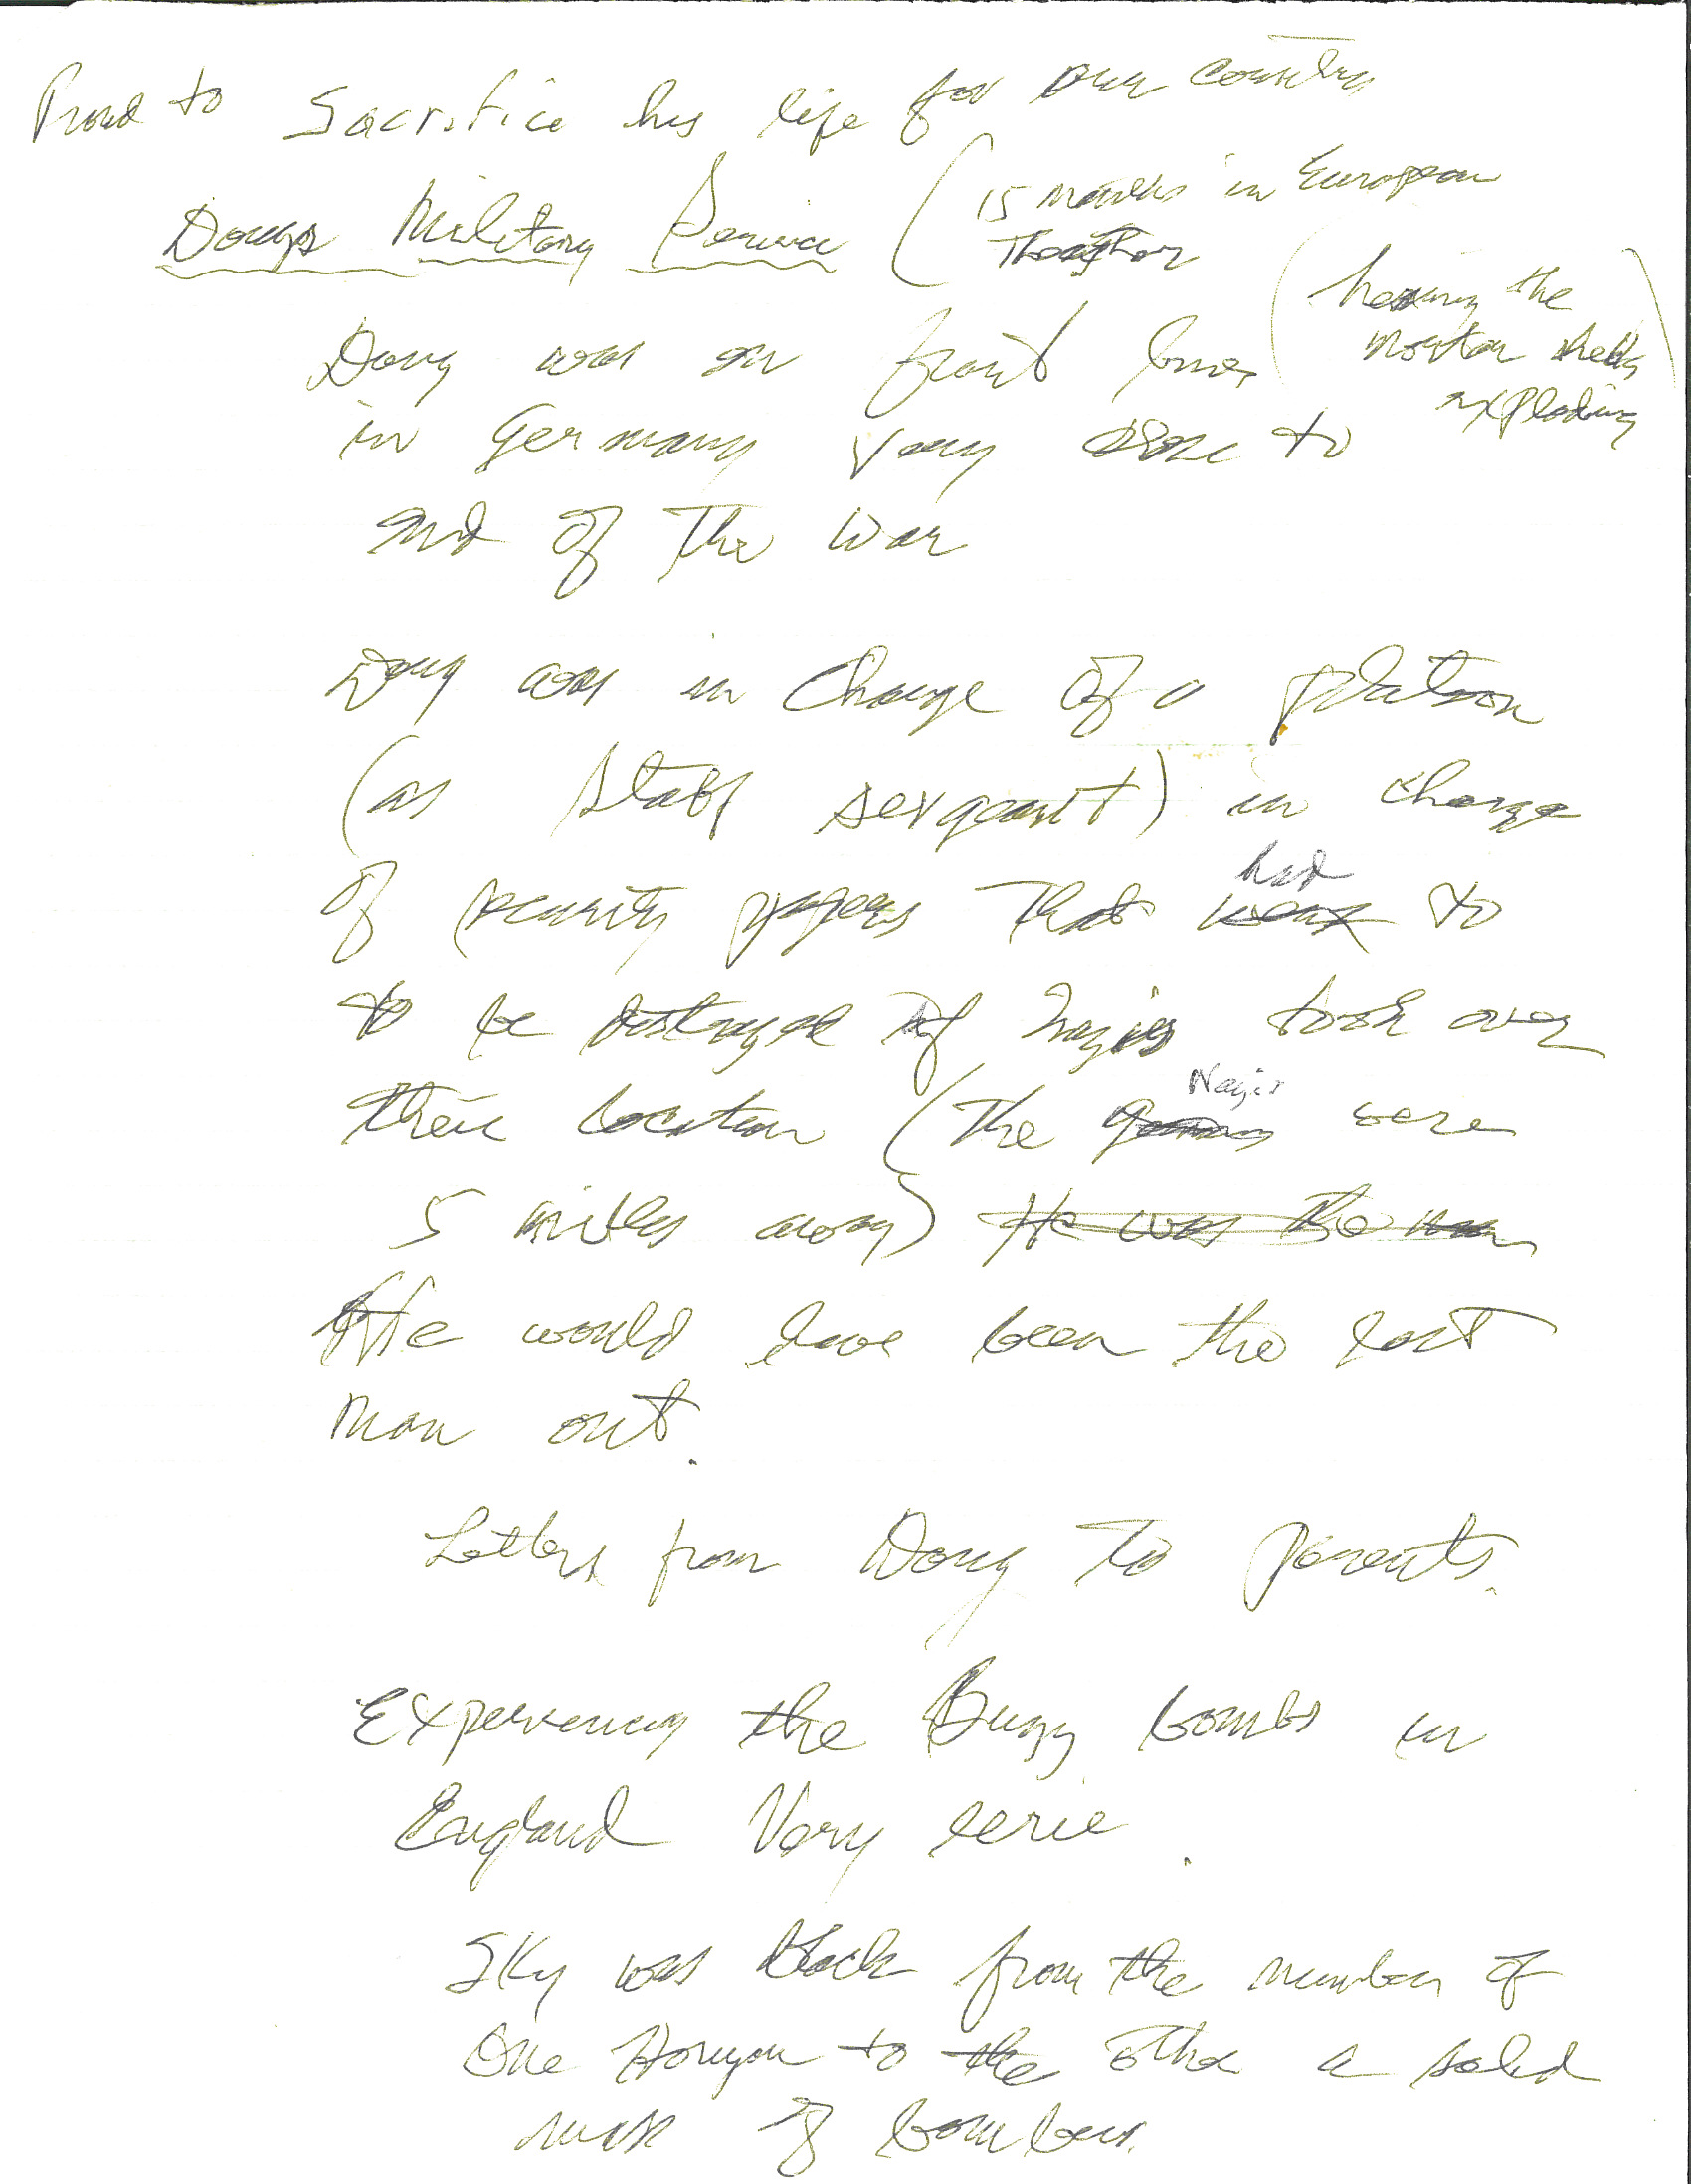 Proud to Sacrifice his life for our country
Dougs Military Service (15 months in European
Theather
Doug was on front lines (hearing the
mortar shells
exploding)
in Germany very close to
end of The war
Doug was in charge of a platoon
(as staff sergeant) in charge
of security papers That had to
to be destroyed if Nazis took over
their location (The Nazis were
5 miles away) He was the
He would have been the last
man out.
Letters from Doug to parents.
Experiencing the Buzz bombs in
England Very eerie.
Sky was black from the number of
One Horizon to the other a solid
mass of bombers.